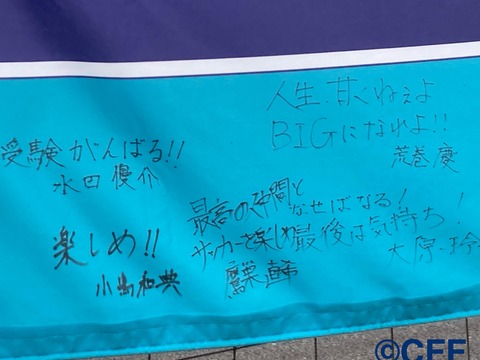 受験がんばる!!
水田優介
人生、甘くねぇよ
BIGになれよ!!
荒巻慶
楽しめ!!
小嶋和典
最高の仲間と
サッカーを楽しめ
なせばなる!
最後は気持ち!
大原
©CFF